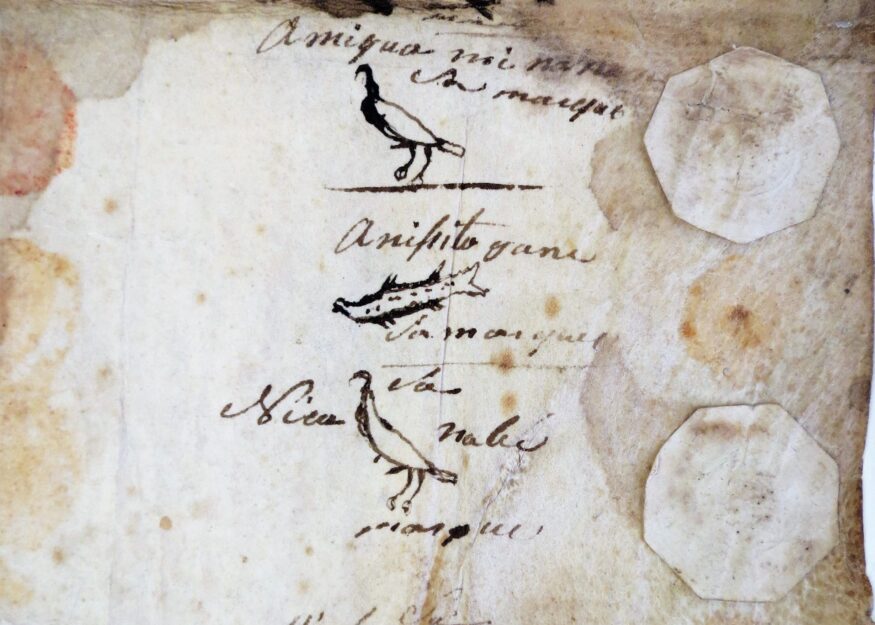 Amiqua mi
Sa marque
Anissito gane
Sa marque
Sa
Nica nabé
marque